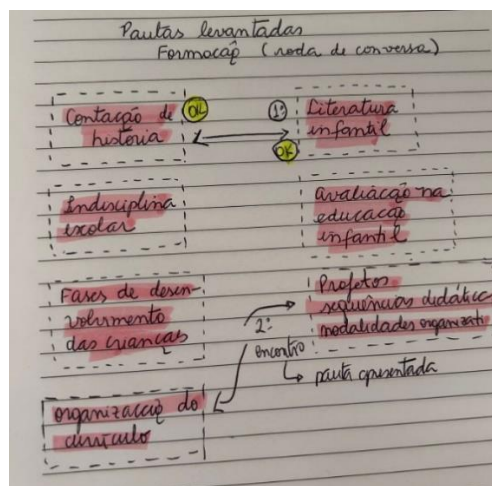 Pautas levantadas
Formação (roda de conversa)
Contação de OK
história
1º Literatura
infantil
OK
Indisciplina
escolar
avaliação na
educação
infantil
Fases de desen-
volvimento
das crianças
Projetos
sequências didátic
modalidades organizati
2º
encontro
pauta apresentada
organização do
currículo